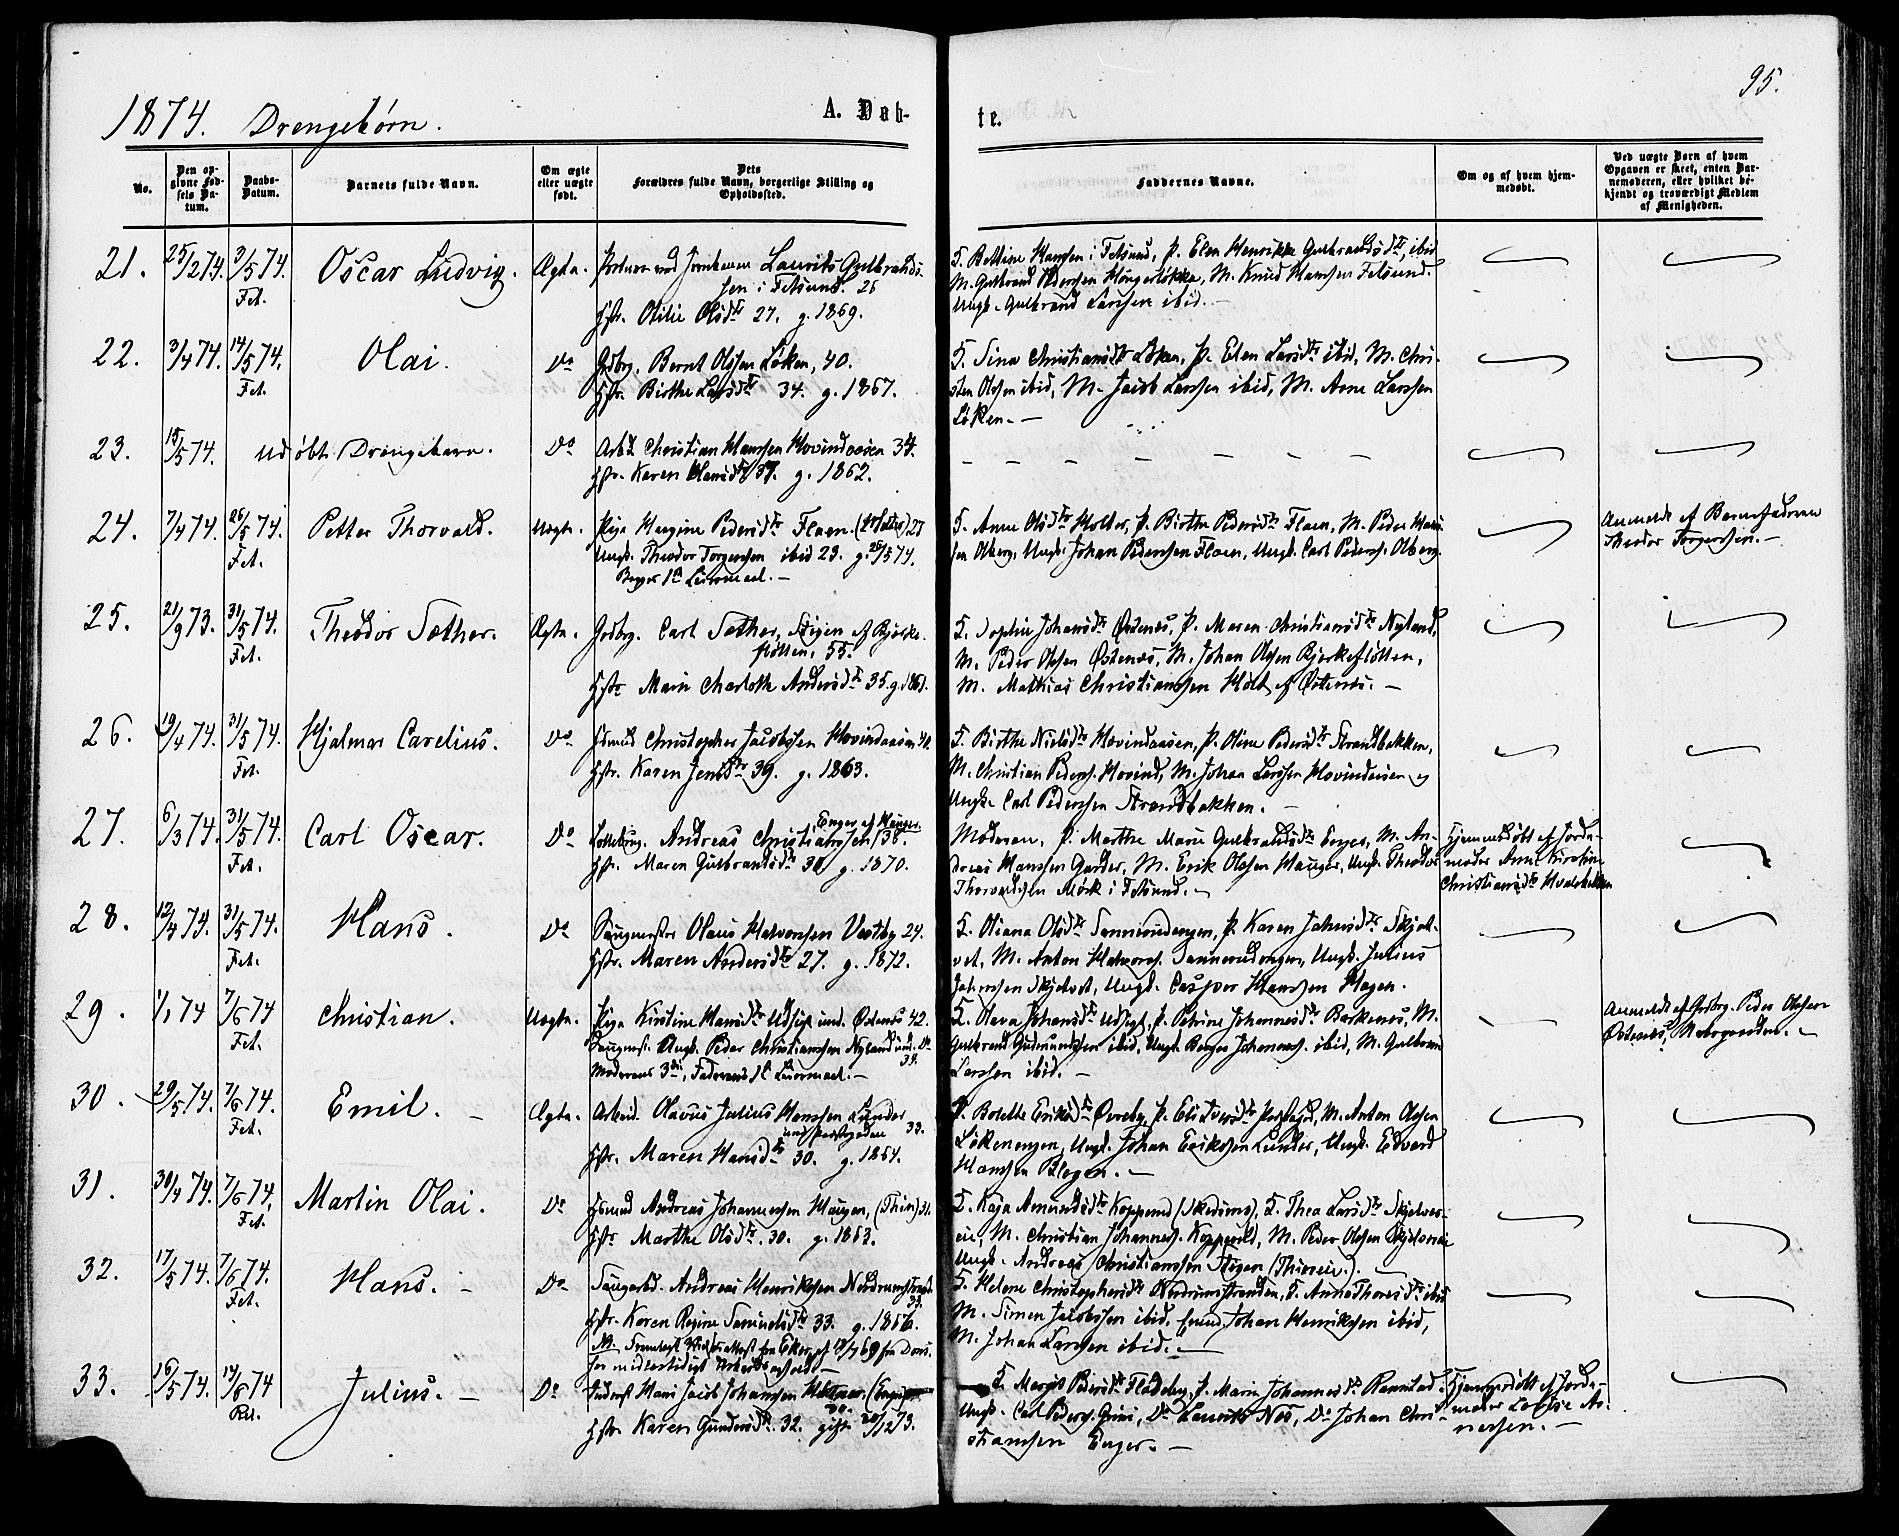 95.
1874. Drengebørn.
A. Døb-
te.
No.
Den op-
givne Fød-
sels Da-
tum.
Daabs-
Datum.
Barnets fulde Navn.
Om ægte
eller uægte
født.
Dets
Forældres fulde Navn, borgerlige Stilling og
Opholdssted.
Faddernes Navne.
Om og af hvem hjem-
medøbt.
Ved uægte Børn af hvem
Opgaven er skeet, enten Bar-
nemoderen, eller hvilket be-
kjendt og troværdigt Medlem
af Menigheden.
21. 25/2 74. 3/5 74. Oscar Ludvig. Ægte. Laurits Gulbrands-
Fet. sen i Fetsund. 26
Hstr. Otilie Olsdtr 27. g. 1869.
F. Bettine Hansen i Fetsund, P. Elen Henrikke Gulbrandsdtr, ibid
M. Gulbrand Pedersen M. Knud Hansen Fetsund.
Ungk. Gulbrand Larssen ibid. —
22. 3/4 74. 14/5 74. Olai. Do Gdbrg. Bernt Olssen Løken, 40.
Fet. Hstr. Birthe Larsdtr 34. g. 1867.
F. Tina Christiansdtr Løken, P. Elen Larsdtr ibid, M. Chri-
sten Olssen ibid, M. Jacob Larssen ibid, M. Arne Larssen
Løken. —
23. 15/5 74. udøbt Drengebarn. Do Arbd. Christian Hanssen Hovindaasen 34.
Hstr. Karen Hansdtr 37. g. 1862.
— — — — — — — —
24. 7/4 74. 26/5 74. Petter Thorvald. Uægte. Pige Hergine Pedersdtr Flaen.
Fet. Ungk. Theodor Torgerssen ibid 23. g. 26/5 74.
Begges 1ste Leiermaal. —
F. Anne Olsdtr Holter, P. Birthe Pedersdtr Flaen, M. Peder Han-
sen Olberg, Ungk. Johan Pederssen Flaen, Ungk. Carl Peders. Olberg.
Anmeldt af Barnefaderen
Theodor Torgerssen. —
25. 21/9 73. 31/5 74. Theodor Sæther. Ægte. Gdbrg. Carl Sæther, Stigen af Bjørke-
Fet. flotten, 55.
Hstr. Marie Charlotte Andersdtr 35. g.
F. Sophie Johansdtr Østenes, P. Maren Christiansdtr Nyland,
M. Peder Olssen Østenes, M. Johan Olssen Bjerkeflotten,
M. Mathias Christianssen Holt af Østenes. —
26. 19/4 74. 31/5 74. Hjalmar Carelius. Do. Hsmd. Christopher Jacobssen Hovindaasen 40.
Fet. Hstr. Karen Jensdtr 39. g. 1863.
F. Birthe Nielsdtr Hovindaasen, P. Oline Pedersdtr Strandbakken,
M. Christian Peders. Hovind, M. Johan Larssen Hovindaasen og
Ungk. Carl Pederssen Strandbakken. —
27. 6/3 74. 31/5 74. Carl Oscar. Do Andreas Christianssen Enger af Hauger. 38.
Fet. Hstr. Maren Gulbrandsdtr 30. g. 1870.
Moderen, P. Marthe Marie Gulbrandsdtr Enger, M. An-
dreas Hanssen Garder, M. Erik Olssen Hauger, Ungk. Theodor
Thorvaldsen Mørk i Fetsund. —
Hjemmedøbt af Jorde-
moder Anne Kirstine
Christiansdtr Hvalsbakken
28. 12/4 74. 31/5 74. Hans. Do Saugmester Olaus Halvorssen Vestby 24.
Fet. Hstr. Maren Andersdtr 27. g. 1872.
F. Oliana Olsdtr Sannerudengen, P. Karen Jahnsdtr Skjæt-
vet, M. Anton Halvors. Sannerudengen, Ungk. Julius
Jahnssen Skjetvet, Ungk. Casper Hanssen Hagen.
29. 1/1 74 7/6 74 Christian. Uægte. Pige Kirstine Hansdtr Udsigt und. Østenes 42.
Fet. Ungk. Peder Christianssen Nyland und. Do
Moderens 3die, Faderens 1ste Leiermaal. — 38.
F. Olava Johansdtr Udsigt, P. Petrine Johannesdtr Barkenes, M.
Gulbrand Gudmundssen ibid, Ungk. Berger Johanness. ibid, M. Gulbran
Larssen ibid. —
Anmeldt af Gdbrg. Peder Olssen
Østenes, Mellemgaarden. —
30. 29/5 74. 7/6 74. Emil. — Ægte. Arbeid. Olavus Julius Hanssen Lunder
Fet. und. Præstegaarden 33.
Hstr. Maren Hansdtr 30. g. 1864.
F. Bolette Eriksdtr Øvreby, P. Elis M. Anton Olssen
Løkenengen, Ungk. Johan Erikssen Lunder, Ungk. Edvard
Hanssen Blegen. —
31. 30/4 74. 7/6 74. Martin Olai. Do Hsmd. Andreas Johannessen Haugen, (Thien) 31.
Fet. Hstr. Marthe Olsdtr. 30. g. 1863.
F. Kaja Amundsdtr Kopperud (Skedsmo), F. Thea Larsdtr Skjetves-
eie, M. Christian Johanness. Kopperud, M. Peder Olssen Skjetveseie
Ungk. Andreas Christianssen Stigen (Thieneie.). —
32. 17/5 74. 7/6 74. Hans. — Do Saugarbd. Andreas Henrikssen Nordrumstrand.
Fet. 33.
Hstr. Karen Regine Samuelsdtr 33. g. 1866.
for midlertidigt Arbeidsophold. —
F. Helene Christophersdtr Nordrumstranden, F. Anne Thoresdtr ibid
M. Simen Jacobssen ibid, Johan Henrikssen ibid,
M. Johan Larssen ibid. —
33. 16/5 74. 14/6 74 Julius. — Do Hans Jacob Johanssen
Ret. Hstr. Karen Gundersdtr. 32. gift 30/12 73.
F. Margit Pedersdtr Fladeby, P. Marie Johannesdtr Ramstad.
Ungk. Carl Peders. Grini, Do Laurits Næs, Do Johan Chri-
stianssen Enger. —
Hjemmedøbt af Jorde-
moder Lovise Ar-
nesen. —